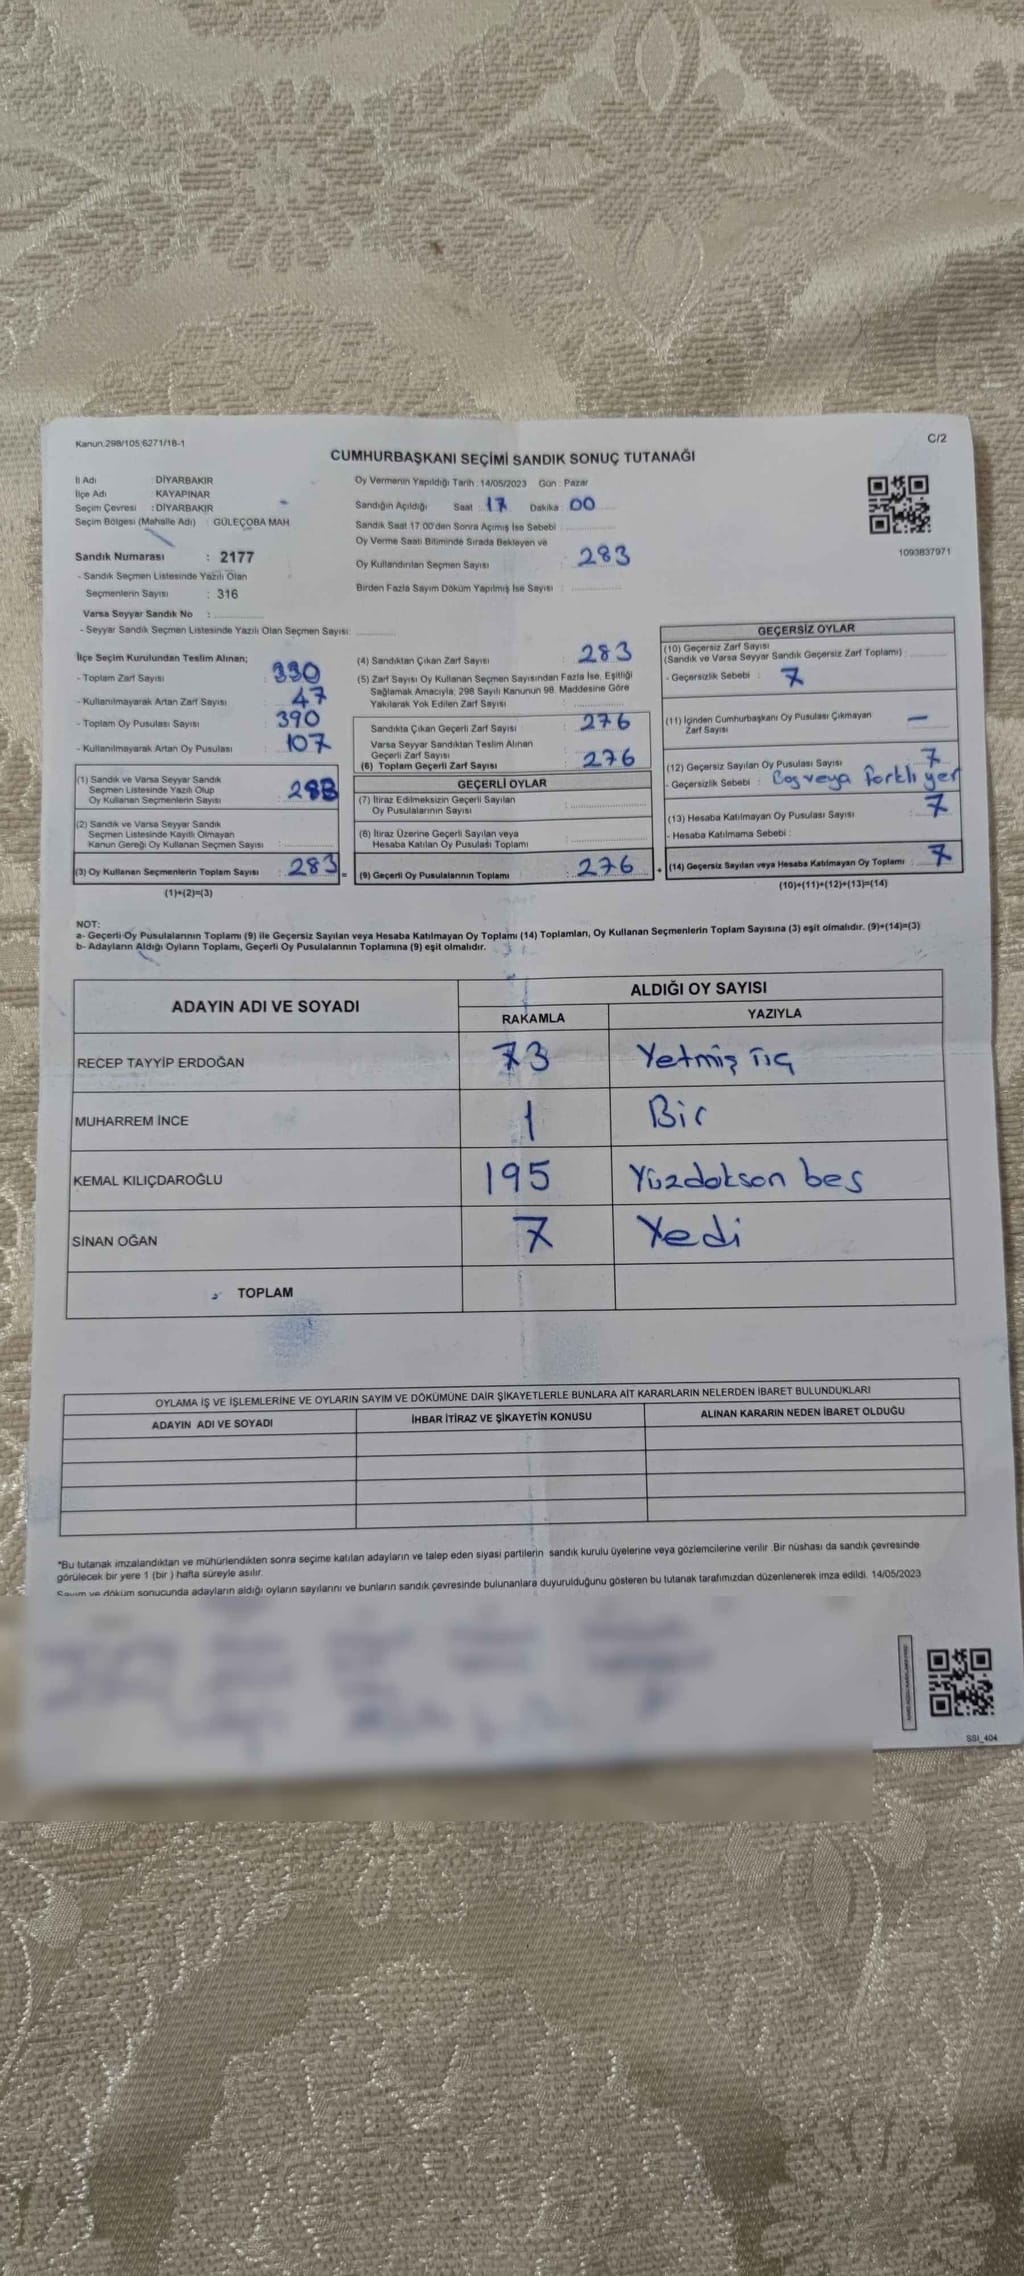 Kanun.298/105,6271/18-1
C/2
CUMHURBAŞKANI SEÇİMİ SANDIK SONUÇ TUTANAĞI
İl Adı : DİYARBAKIR
İlçe Adı : KAYAPINAR
Seçim Çevresi : DİYARBAKIR
Seçim Bölgesi (Mahalle Adı) : GÜLEÇOBA MAH
Sandık Numarası : 2177
- Sandık Seçmen Listesinde Yazılı Olan
Seçmenlerin Sayısı : 316
Varsa Seyyar Sandık No :
- Seyyar Sandık Seçmen Listesinde Yazılı Olan Seçmen Sayısı:
Oy Vermenin Yapıldığı Tarih : 14/05/2023 Gün : Pazar
Sandığın Açıldığı Saat : 17 Dakika : 00
Sandık Saat 17:00'den Sonra Açımış İse Sebebi :
Oy Verme Saati Bitiminde Sırada Bekleyen ve
Oy Kullandırılan Seçmen Sayısı : 283
Birden Fazla Sayım Döküm Yapılmış İse Sayısı :
1093837971
İlçe Seçim Kurulundan Teslim Alınan;
- Toplam Zarf Sayısı : 330
- Kullanılmayarak Artan Zarf Sayısı : 47
- Toplam Oy Pusulası Sayısı : 390
- Kullanılmayarak Artan Oy Pusulası : 107
(1) Sandık ve Varsa Seyyar Sandık
Seçmen Listesinde Yazılı Olup
Oy Kullanan Seçmenlerin Sayısı : 283
(2) Sandık ve Varsa Seyyar Sandık
Seçmen Listesinde Kayıtlı Olmayan
Kanun Gereği Oy Kullanan Seçmen Sayısı :
(3) Oy Kullanan Seçmenlerin Toplam Sayısı : 283 =
(1)+(2)=(3)
(4) Sandıktan Çıkan Zarf Sayısı : 283
(5) Zarf Sayısı Oy Kullanan Seçmen Sayısından Fazla İse, Eşitliği
Sağlamak Amacıyla, 298 Sayılı Kanunun 98. Maddesine Göre
Yakılarak Yok Edilen Zarf Sayısı :
Sandıkta Çıkan Geçerli Zarf Sayısı : 276
Varsa Seyyar Sandıktan Teslim Alınan
Geçerli Zarf Sayısı :
(6) Toplam Geçerli Zarf Sayısı : 276
GEÇERLİ OYLAR
(7) İtiraz Edilmeksizin Geçerli Sayılan
Oy Pusulalarının Sayısı :
(8) İtiraz Üzerine Geçerli Sayılan veya
Hesaba Katılan Oy Pusulası Toplamı :
(9) Geçerli Oy Pusulalarının Toplamı : 276 +
GEÇERSİZ OYLAR
(10) Geçersiz Zarf Sayısı
(Sandık ve Varsa Seyyar Sandık Geçersiz Zarf Toplamı) :
- Geçersizlik Sebebi : 7
(11) İçinden Cumhurbaşkanı Oy Pusulası Çıkmayan
Zarf Sayısı : -
(12) Geçersiz Sayılan Oy Pusulası Sayısı : 7
- Geçersizlik Sebebi : Boş veya farklı yer
(13) Hesaba Katılmayan Oy Pusulası Sayısı : 7
- Hesaba Katılmama Sebebi :
(14) Geçersiz Sayılan veya Hesaba Katılmayan Oy Toplamı : 7
(10)+(11)+(12)+(13)=(14)
NOT:
a- Geçerli Oy Pusulalarının Toplamı (9) ile Geçersiz Sayılan veya Hesaba Katılmayan Oy Toplamı (14) Toplamları, Oy Kullanan Seçmenlerin Toplam Sayısına (3) eşit olmalıdır. (9)+(14)=(3)
b- Adayların Aldığı Oyların Toplamı, Geçerli Oy Pusulalarının Toplamına (9) eşit olmalıdır.
ADAYIN ADI VE SOYADI
ALDIĞI OY SAYISI
RAKAMLA YAZIYLA
RECEP TAYYİP ERDOĞAN 73 Yetmiş üç
MUHARREM İNCE 1 Bir
KEMAL KILIÇDAROĞLU 195 Yüzdoksan beş
SİNAN OĞAN 7 Yedi
TOPLAM
OYLAMA İŞ VE İŞLEMLERİNE VE OYLARIN SAYIM VE DÖKÜMÜNE DAİR ŞİKAYETLERLE BUNLARA AİT KARARLARIN NELERDEN İBARET BULUNDUKLARI
ADAYIN ADI VE SOYADI İHBAR İTİRAZ VE ŞİKAYETİN KONUSU ALINAN KARARIN NEDEN İBARET OLDUĞU
*Bu tutanak imzalandıktan ve mühürlendikten sonra seçime katılan adayların ve talep eden siyasi partilerin sandık kurulu üyelerine veya gözlemcilerine verilir. Bir nüshası da sandık çevresinde
görülecek bir yere 1 (bir ) hafta süreyle asılır.
Sayım ve döküm sonucunda adayların aldığı oyların sayılarını ve bunların sandık çevresinde bulunanlara duyurulduğunu gösteren bu tutanak tarafımızdan düzenlenerek imza edildi. 14/05/2023
SSI_404